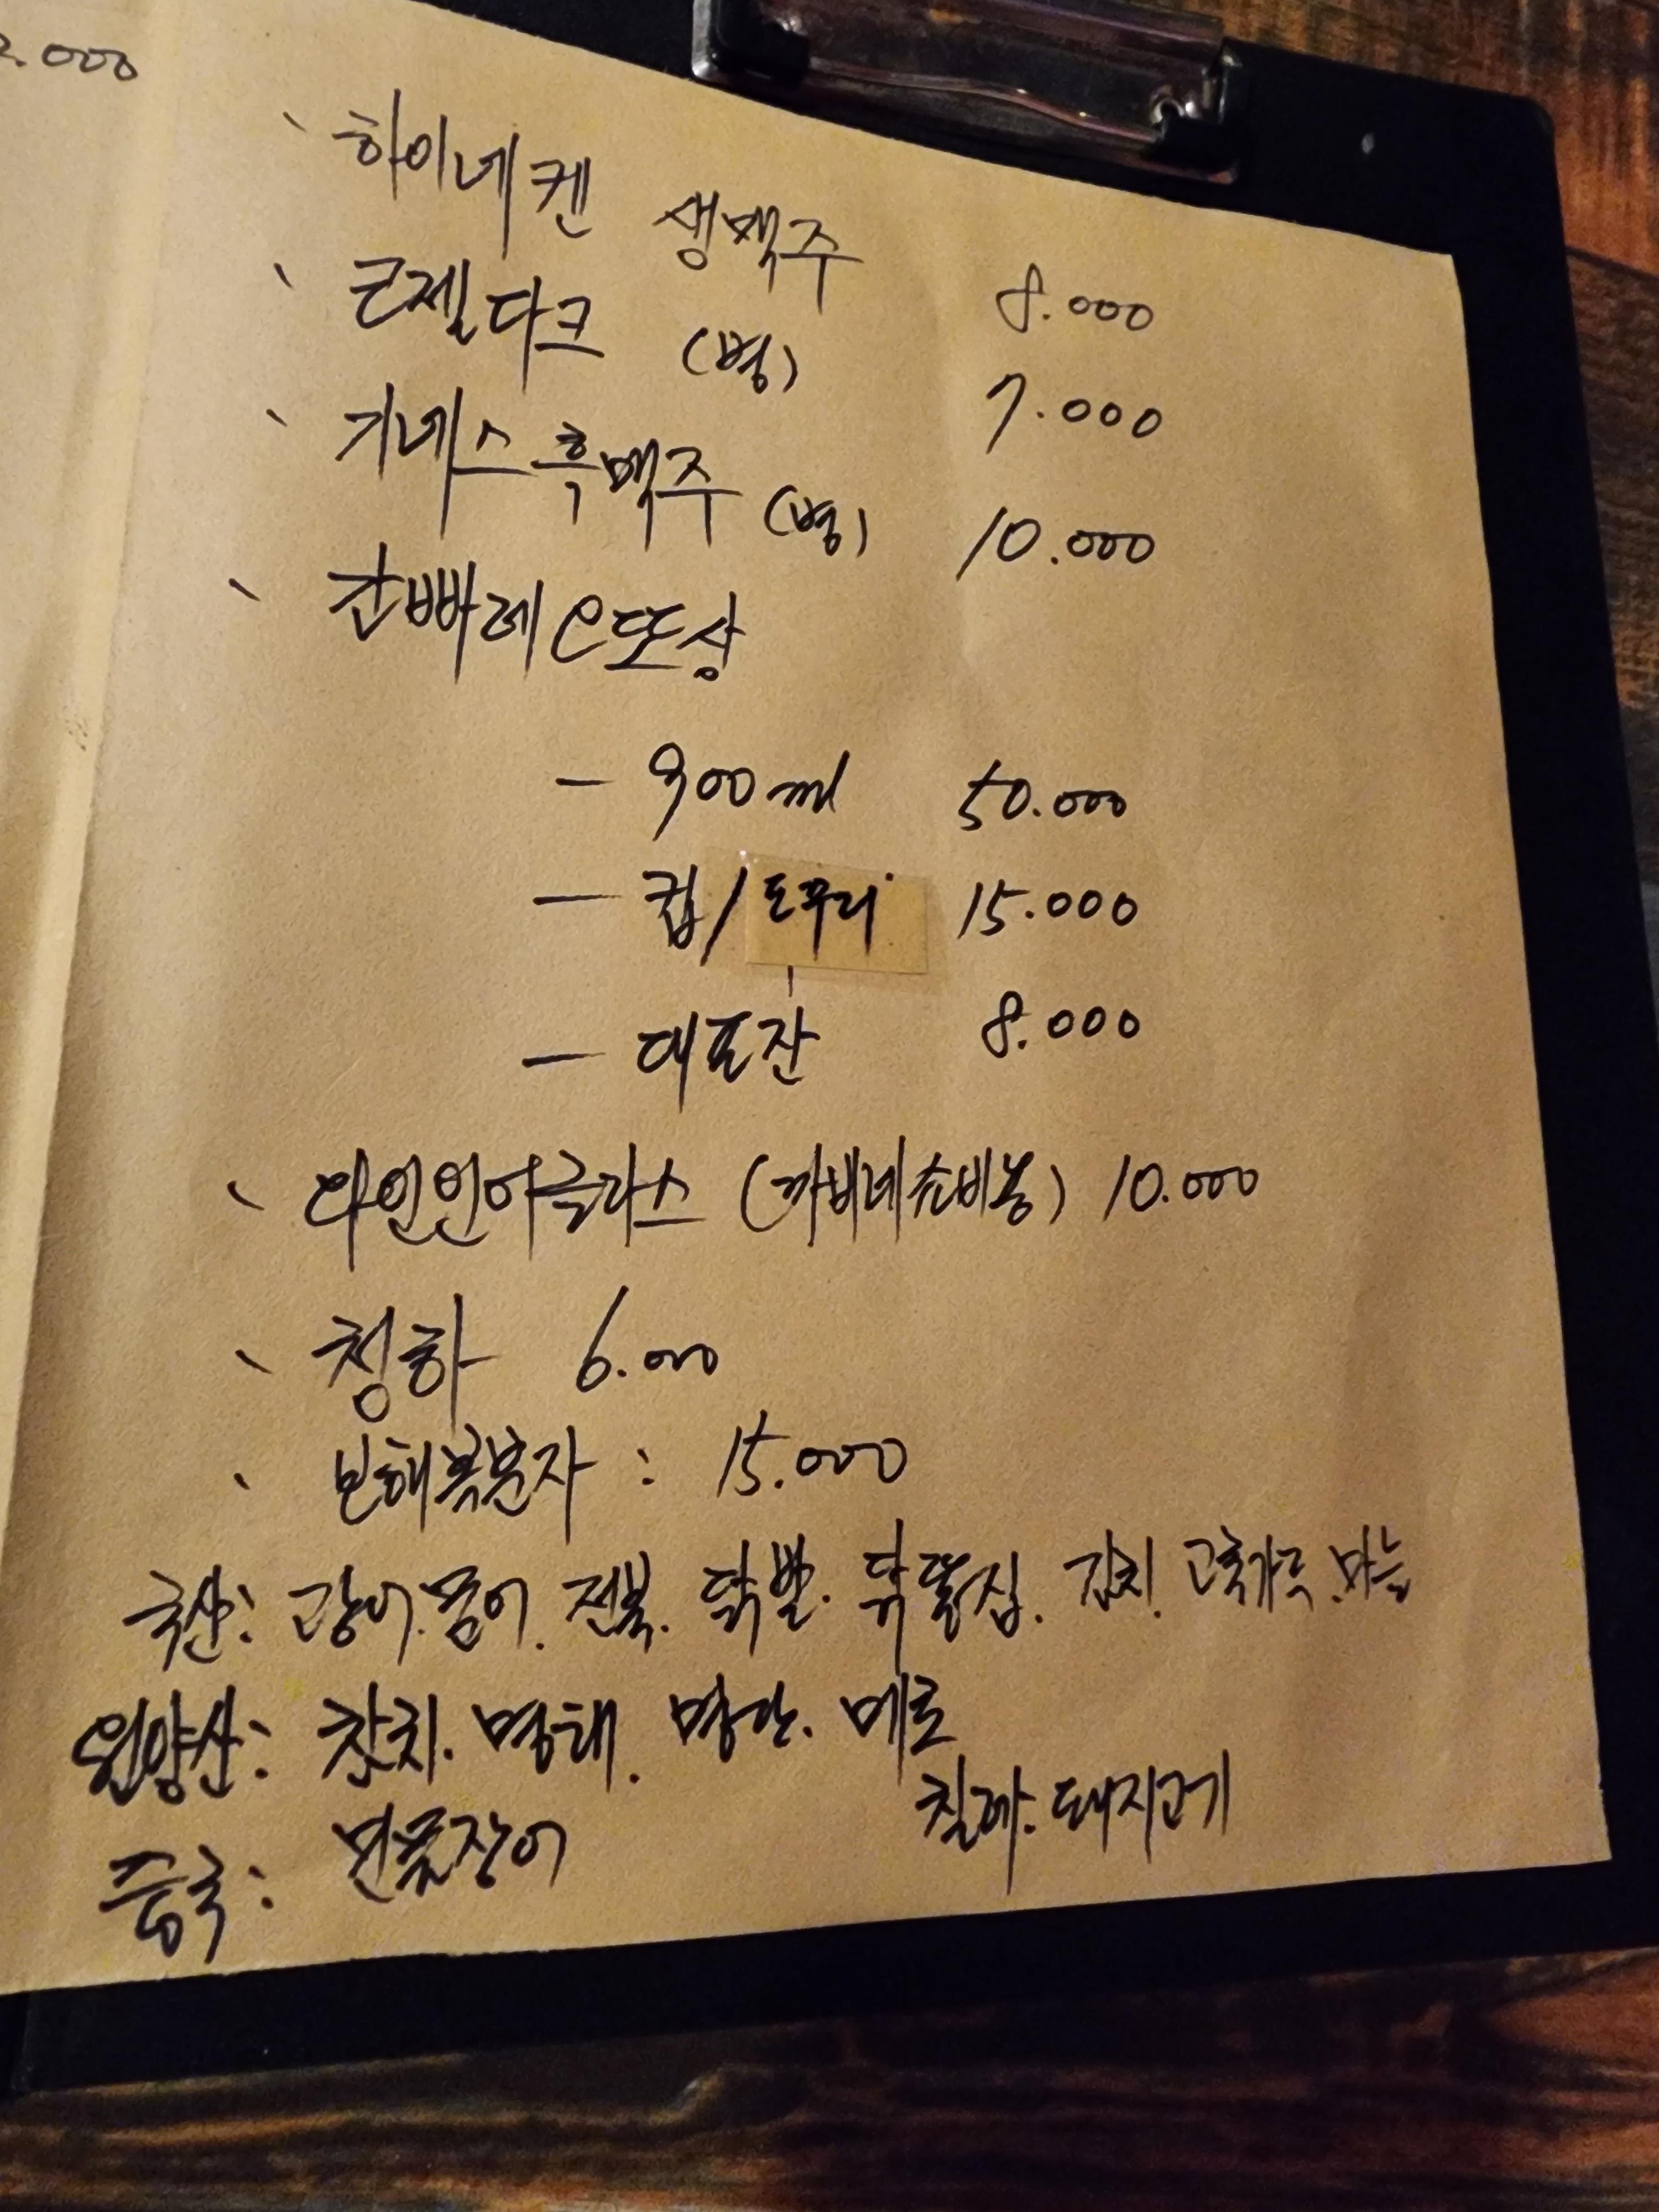 2.000
、 하이네켄 생맥주 8.000
、 코젤다크 (병) 7.000
、 기네스흑맥주 (병) 10.000
、 간빠레 오또상
— 900ml 50.000
— 컵/도꾸리 15.000
— 대포잔 8.000
、 와인인어글라스 (까베네쇼비뇽) 10.000
、 청하 6.000
、 보해복분자 : 15.000
국산: 광어.문어. 전복. 닭발. 닭똥집. 김치. 고춧가루. 마늘
원양산: 참치. 명태. 명란. 메로
칠레. 돼지고기
중국: 민물장어